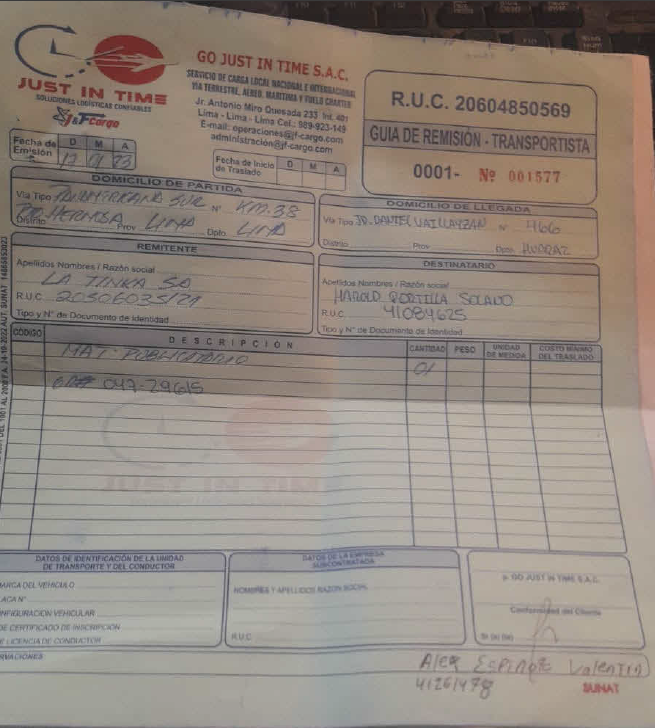 JUST IN TIME
SOLUCIONES LOGÍSTICAS CONFIABLES
J&F Cargo
GO JUST IN TIME S.A.C.
SERVICIO DE CARGA LOCAL NACIONAL E INTERNACIONAL
VIA TERRESTRE, AEREO, MARITIMA Y FUELO CHARTER
Jr. Antonio Miro Quesada 233 Int. 401
Lima - Lima - Lima Cel.: 989-923-149
E-mail: operaciones@jf-cargo.com
administración@jf-cargo.com
R.U.C. 20604850569
GUIA DE REMISIÓN - TRANSPORTISTA
0001- Nº 001577
Fecha de Emisión D M A
Fecha de Inicio de Traslado D M A
DOMICILIO DE PARTIDA
Vía Tipo PANAMERICANA SUR Nº KM.38
Distrito HERMOSA Prov. LIMA Dpto. LIMA
DOMICILIO DE LLEGADA
Vía Tipo JR. DANIEL Nº 466
Distrito Prov. Dpto. HUARAZ
REMITENTE
Apellidos Nombres / Razón social
LA TINKA SA
R.U.C.
Tipo y N° de Documento de Identidad
DESTINATARIO
Apellidos Nombres / Razón social
HAROLD PORTILLA SOLANO
R.U.C. 41084625
Tipo y N° de Documento de Identidad
CÓDIGO DESCRIPCION CANTIDAD PESO UNIDAD DE MEDIDA COSTO MINIMO DEL TRASLADO
MAT. PUBLICITARIO 01
047-29615
JUST IN TIME
DATOS DE IDENTIFICACIÓN DE LA UNIDAD DE TRANSPORTE Y DEL CONDUCTOR
MARCA DEL VEHICULO
PLACA N°
CONFIGURACIÓN VEHICULAR
DE CERTIFICADO DE INSCRIPCION
DE LICENCIA DE CONDUCTOR
DATOS DE LA EMPRESA SUBCONTRATADA
NOMBRES Y APELLIDOS RAZON SOCIAL
R.U.C.
p. GO JUST IN TIME S.A.C.
Conformidad del Cliente
VACIONES:
Alex Espinoza Valentin
41261478
SUNAT